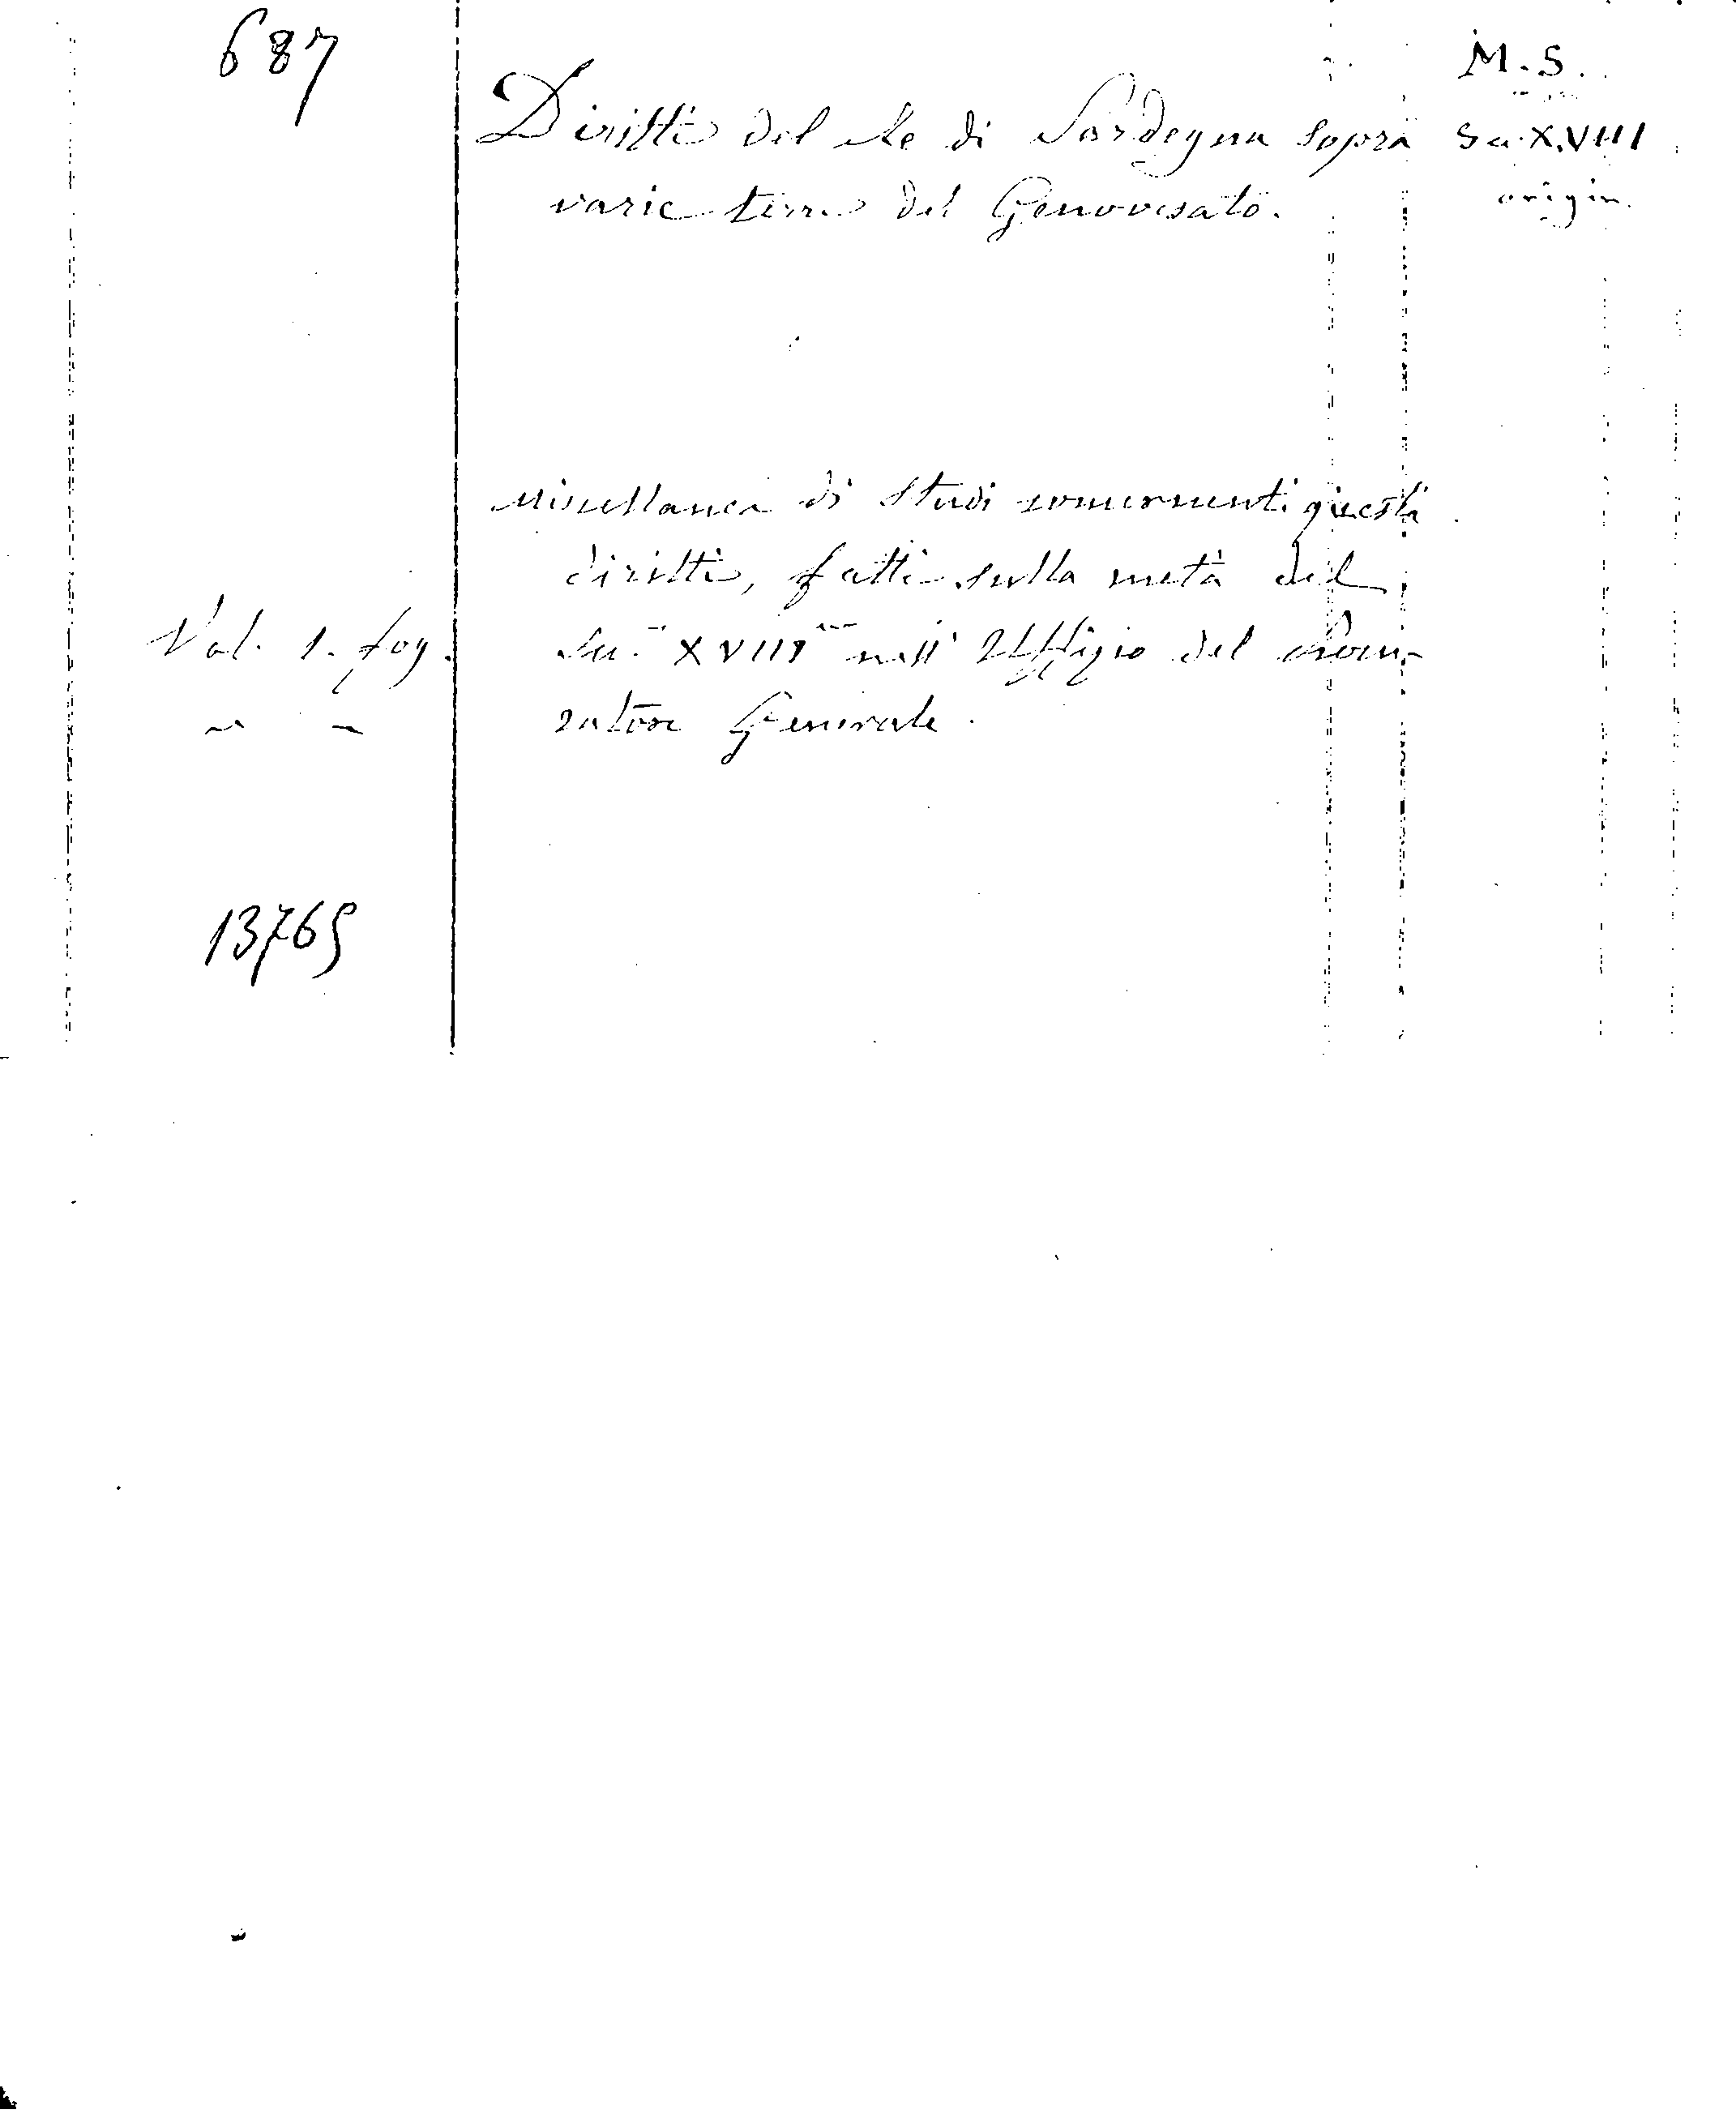 687
M.S.
Diritti del Re di Sardegna sopra
Sec. XVIII
varie terre del Genovesato.
origin.
Miscellanea di studi concernenti questi
diritti, fatti sulla metà del
Vol. 1. fog.
Sec. XVIII nell' Uffizio del Procu-
ratore Generale.
13765